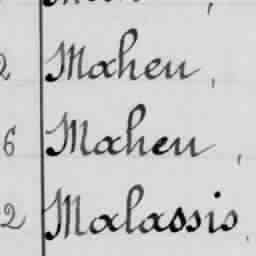 2 Maheu,
6 Maheu,
2 Malassis,